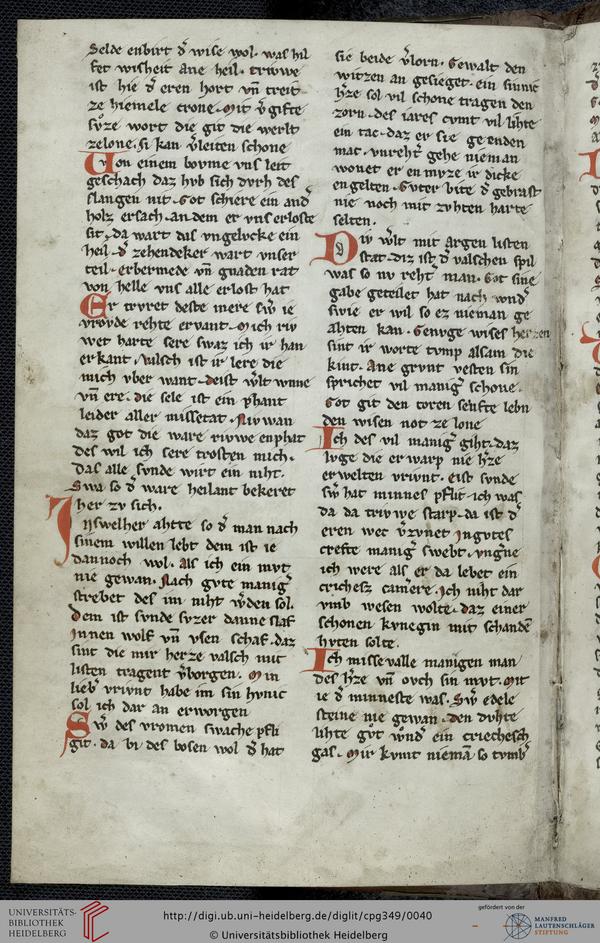 Selde enbirt dˀ wise wol. was hil
fet wisheit ane heil. triwe
ist hie dˀ eren hort vn̄ treit
ze hiemele crone. Mit vˀgifte
svͦze wort die git die werlt
zelone. si kan vˀleiten schone
Von einem bovme vns leit
geschach daz hvb sich dvrh des
slangen nit. Got schiere ein andˀ
holz ersach. an dem er vns erloste
sit. da wart das vngelvcke ein
heil. dˀ zehendeker wart vnser
teil. erbermede vn̄ gnaden rat
von helle vns alle erlost hat
Er trvret deste mere swˀ ie
vrovde rehte ervant. Mich riv
wet harte sere swaz ich ir han
erkant. valsch ist ir lere die
mich vber want. deist wˀlt wnne
vn̄ ere. die sele ist ein phant
leider aller missetat. Nivwan
daz got die ware rivwe enphat
des wil ich sere trosten mich.
Das alle svnde wirt ein niht.
Swa so dˀ ware heilant bekeret
her zv sich.
Iiswelher ahtte so dˀ man nach
sinem willen lebt dem ist ie
dannoch wol. als ich ein mvt
nie gewan. Nach gvte manigˀ
strebet des im niht wˀden sol.
Dem ist svnde svzer danne slaf
Innen wolf vn̄ vsen schaf. daz
sint die mir herze valsch mit
listen tragent vˀborgen. Min
liebˀ vrivnt habe im sin hvnic
sol ich dar an erworgen
Swˀ des vromen swache pfli
git. da bi des bosen wol dˀ hat
sie beide vˀlorn. Gewalt den
witzen an gesieget. ein sinnic
hˀze sol vil schone tragen den
zorn. des iares cvmt vil lihte
ein tac. daz er sie geenden
mac. vnrehtˀ gehe nieman
wonet er en mvze ir dicke
engelten. Gvter bite dˀ gebrast
nie noch mit zvhten harte
selten.
Div wˀlt mit argen listen
stat. diz ist dˀ valschen spil
was so nv reht man. Got sine
gabe geteilet hat nach wndˀ
swie er wil so ez nieman ge
ahten kan. Genvge wises herzen
sint ir worte tvmp alsam die
kint. Ane grvnt vesten sin
sprichet vil manigˀ schone.
Got git den toren senfte lebn
den wisen not ze lone
Ich des vil manigˀ giht. daz
lvge die erwarp nie hˀze
erwelten vrivnt. eist svnde
swˀ hat minnes pflit ich was
da da triwe starp. da ist dˀ
eren wec vˀzvnet Ingvtes
crefte manigˀ swebt. vngˀne
ich were als er da lebet ein
crichesz camˀere. Ich niht dar
vmb wesen wolte. daz einer
schonen kvnegin mit schandē
hvten solte.
Ich misse valle manigen man
des hˀze vn̄ ovch sin mvt. mit
ie dˀ minneste was. Swˀ edele
steine nie gewan. den dvhte
lihte gvͦt wͦndˀ ein criechesch
gas. Mir kvmt niemā so tvmbˀ
UNIVERSITÄTS-
BIBLIOTHEK
HEIDELBERG
http://digi.ub.uni-heidelberg.de/diglit/cpg349/0040
© Universitätsbibliothek Heidelberg
gefördert von der
MANFRED
LAUTENSCHLÄGER
STIFTUNG